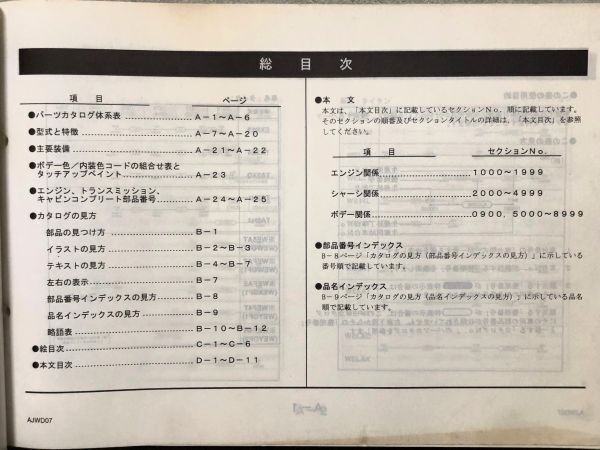 総目次
項目 ページ
●パーツカタログ体系表 A-1～A-6
●型式と特徴 A-7～A-20
●主要装備 A-21～A-22
●ボデー色/内装色コードの組合せ表と
タッチアップペイント A-23
●エンジン、トランスミッション、
キャビンコンプリート部品番号 A-24～A-25
●カタログの見方
部品の見つけ方 B-1
イラストの見方 B-2～B-3
テキストの見方 B-4～B-7
左右の表示 B-7
部品番号インデックスの見方 B-8
品名インデックスの見方 B-9
略語表 B-10～B-12
●絵目次 C-1～C-6
●本文目次 D-1～D-11
●本文
本文は、「本文目次」に記載しているセクションNo．順に記載しています。
そのセクションの順番及びセクションタイトルの詳細は、「本文目次」を参照
してください。
項目 セクションNo．
エンジン関係 1000～1999
シャーシ関係 2000～4999
ボデー関係 0900，5000～8999
●部品番号インデックス
B-8ページ「カタログの見方（部品番号インデックスの見方）」に示している
番号順で記載しています。
●品名インデックス
B-9ページ「カタログの見方（品名インデックスの見方）」に示している品名
順で記載しています。
AJWD07